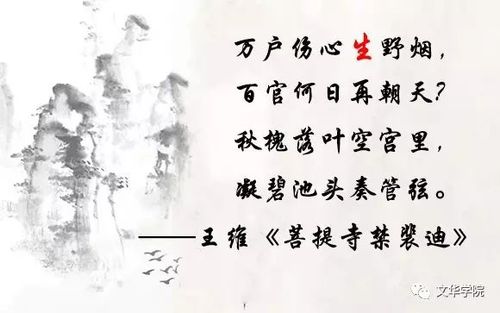 万户伤心生野烟，
百官何日再朝天？
秋槐落叶空宫里，
凝碧池头奏管弦。
——王维《菩提寺禁裴迪》
文华学院